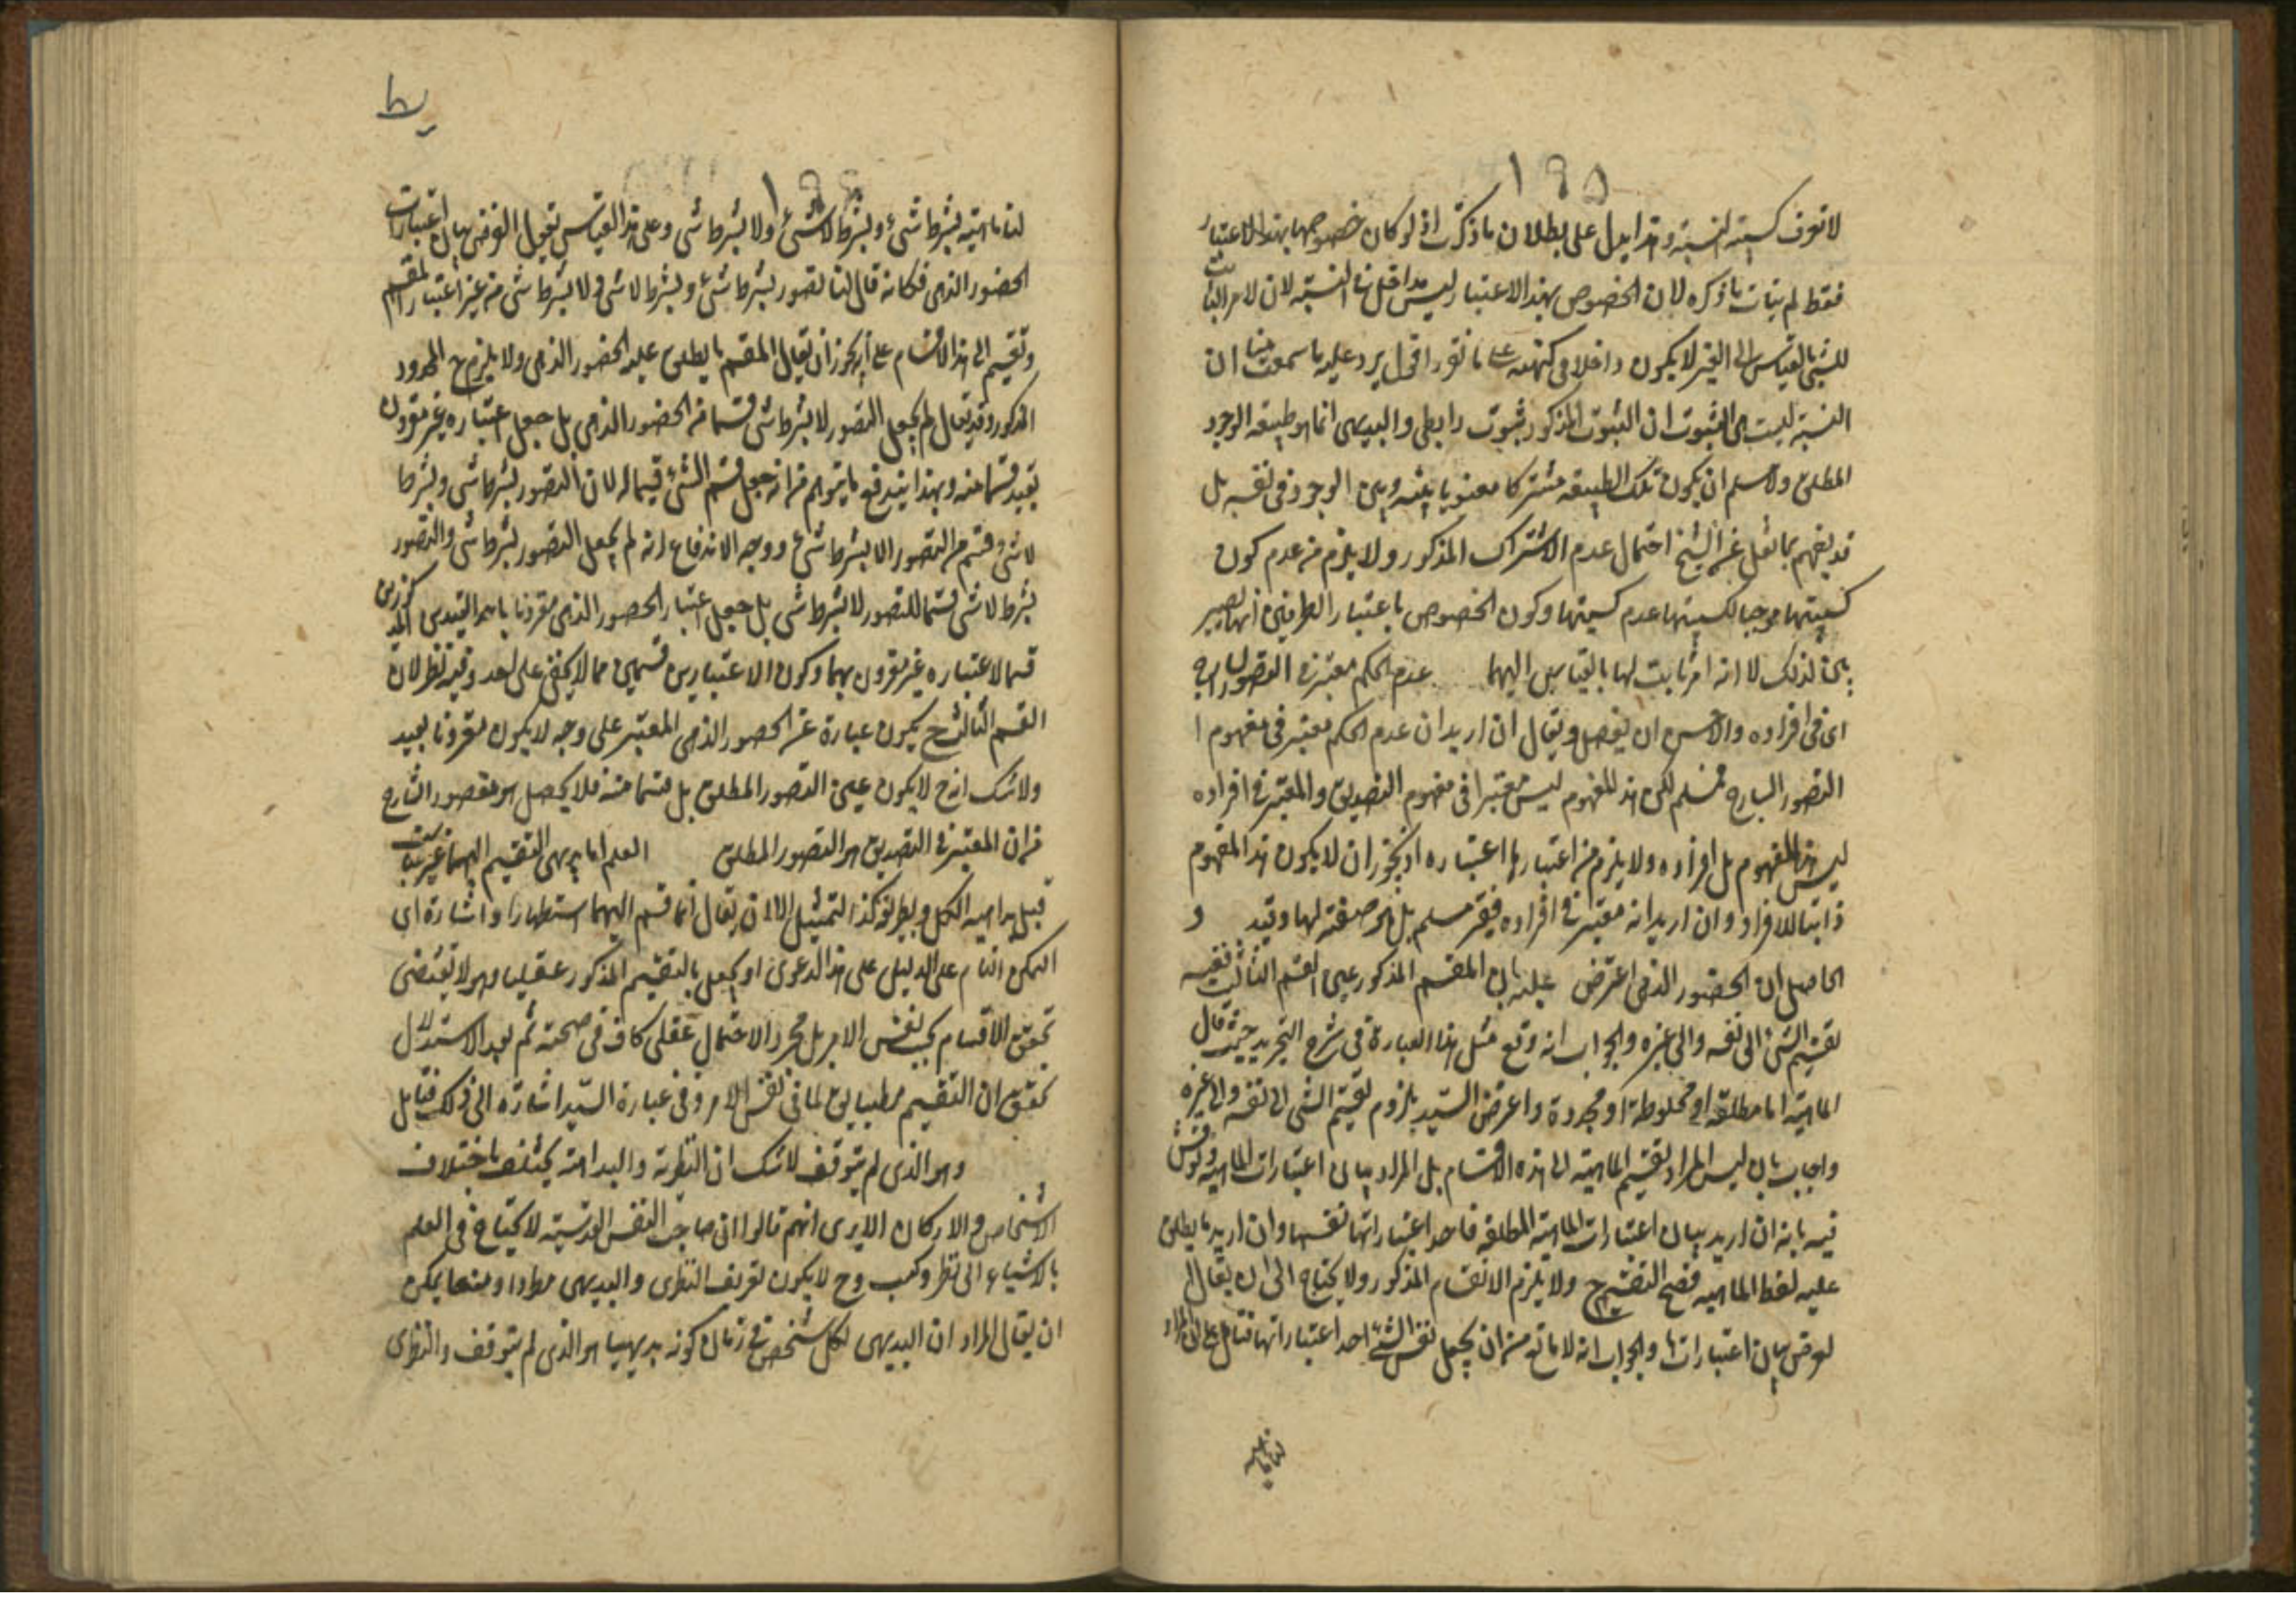 ١٩٥
لا تعرف كسبية النسبة وهذا يدل على بطلان ما ذكرت اذ لو كان خصوصها بهذا الاعتبار
فقط لم يتأت ما ذكره لان الخصوص بهذا الاعتبار ليس مداخل في النسبة لان الامر الثابت
للشيء بالقياس الى الغير لا يكون داخلا في كنهه على ما تقرر اقول يرد عليه ما سمعت منا ان
النسبة ليست هي الثبوت ان الثبوت المذكور ثبوت رابطي والبديهي انما هو طبيعة الوجود
المطلق ولا نسلم ان يكون تلك الطبيعة مشتركا معنويا بينه وبين الوجود في نفسه بل
قد يفهم مما نقل عن الشيخ احتمال عدم الاشتراك المذكور ولا يلزم من عدم كون
كسبيتها موجبا لكسبيتها عدم كسبيتها وكون الخصوص باعتبار الطرفين انها يصير
لذلك لا انه امر ثابت لها بالقياس اليهما عدم الحكم معتبر في التصور الساذج
اى في افراده والاحسن ان يفصل ويقال ان اريد ان عدم الحكم معتبر في مفهوم ا
التصور الساذج فمسلم لكن هذا المفهوم ليس معتبرا في مفهوم التصديق والمعتبر في افراده
ليس هذا المفهوم بل افراده ولا يلزم من اعتبارها اعتباره اذ يجوز ان لا يكون هذا المفهوم
ذاتيا للافراد وان اريد انه معتبر في افراده فغير مسلم بل هو صفة لها وقيد و
الحاصل ان الحضور الذهني اعترض عليه بان المقسم المذكور عين القسم الثالث ففيه
تقسيم الشيء الى نفسه والى غيره والجواب انه وقع مثل هذا العبارة في شرح التجريد حيث قال
الماهية اما مطلقة او مخلوطة او مجردة واعترض السيد بلزوم تقسيم الشي الى نفسه والى غيره
واجاب بان ليس المراد تقسيم الماهية الى هذه الاقسام بل المراد بيان اعتبارات الماهية ونوقش
فيه بانه ان اريد بيان اعتبارات الماهية المطلقة فاحد اعتباراتها نفسها وان اريد ما يطلق
عليه لفظ الماهية فصح التقسيم ح ولا يلزم الانقسام المذكور ولا يحتاج الى ان يقال ان
الغرض بيان اعتباراتها والجواب انه لا مانع من ان يجعل نفس الشئ احد اعتباراتها فتامل على ان المراد
لنا ماهية
١٩٤
لنا ماهية بشرط شئ وبشرط لا شئ ولا بشرط شى وعلى هذا القياس نقول الغرض بيان اعتبارات
الحضور الذهنى فكانه قال لنا تصور بشرط شئ وبشرط لا شى ولا بشرط شى من غير اعتبار المقسم
وتقسيم الى هذا الاقسام على انه يجوز ان يقال المقسم ما يطلق عليه الحضور الذهنى ولا يلزم ح المحذور
المذكور وقد يقال لم يجعل التصور لا بشرط شى قسما من الحضور الذهنى بل جعل اعتباره غير مقرون
بقيد قسما منه وبهذا يندفع ما يتوهم من انه جعل قسم الشئ قسيما له لان التصور بشرط شى وبشرط
لا شى قسم من التصور الا بشرط شئ ووجه الاندفاع انه لم يجعل التصور بشرط شى والتصور
بشرط لا شى قسما للتصور لا بشرط شى بل جعل اعتبار الحضور الذهنى مقرونا باحد القيدين المذكورين
قسما لاعتباره غير مقرون بهما وكون الاعتبارين قسمين مما لا يخفى على احد وفيه نظر لان
القسم الثالث ح يكون عبارة عن الحضور الذهنى المعتبر على وجه لا يكون مقرونا بقيد
ولا شك انه ح لا يكون عين التصور المطلق بل قسما منه فلا يحصل هو مقصور الشارح
من ان المعتبر في التصديق هو التصور المطلق العلم اما بديهى التقسيم اليهما غير ثابت
قبل بداهة الكل وبطر كذا التمثيل الا ان يقال انما قسم اليهما استظهارا واشارة الى
التمكن التام على الدليل على هذا الدعوى او يجعل بالتقسيم المذكور عقليا وهو لا يقتضى
تحقق الاقسام بحسب نفس الامر بل مجرد الاحتمال عقلى كاف في صحته ثم بعد الاستدلال
تحقق ان التقسيم مطابق لما في نفس الامر وفى عبارة السيد اشارة الى ذلك فتامل
وهو الذى لم يتوقف لا شك ان النظرية والبداهة يختلف باختلاف
الاشخاص والاركان الا يرى انهم قالوا ان صاحب النفس القدسية لا يحتاج فى العلم
بالاشياء الى نظر وكسب وح لا يكون تعريف النظرى والبديهى مطردا ومنعكسا يمكن
ان يقال المراد ان البديهى لكل شخص في زمان كونه بديهيا هو الذى لم يتوقف والنظرى